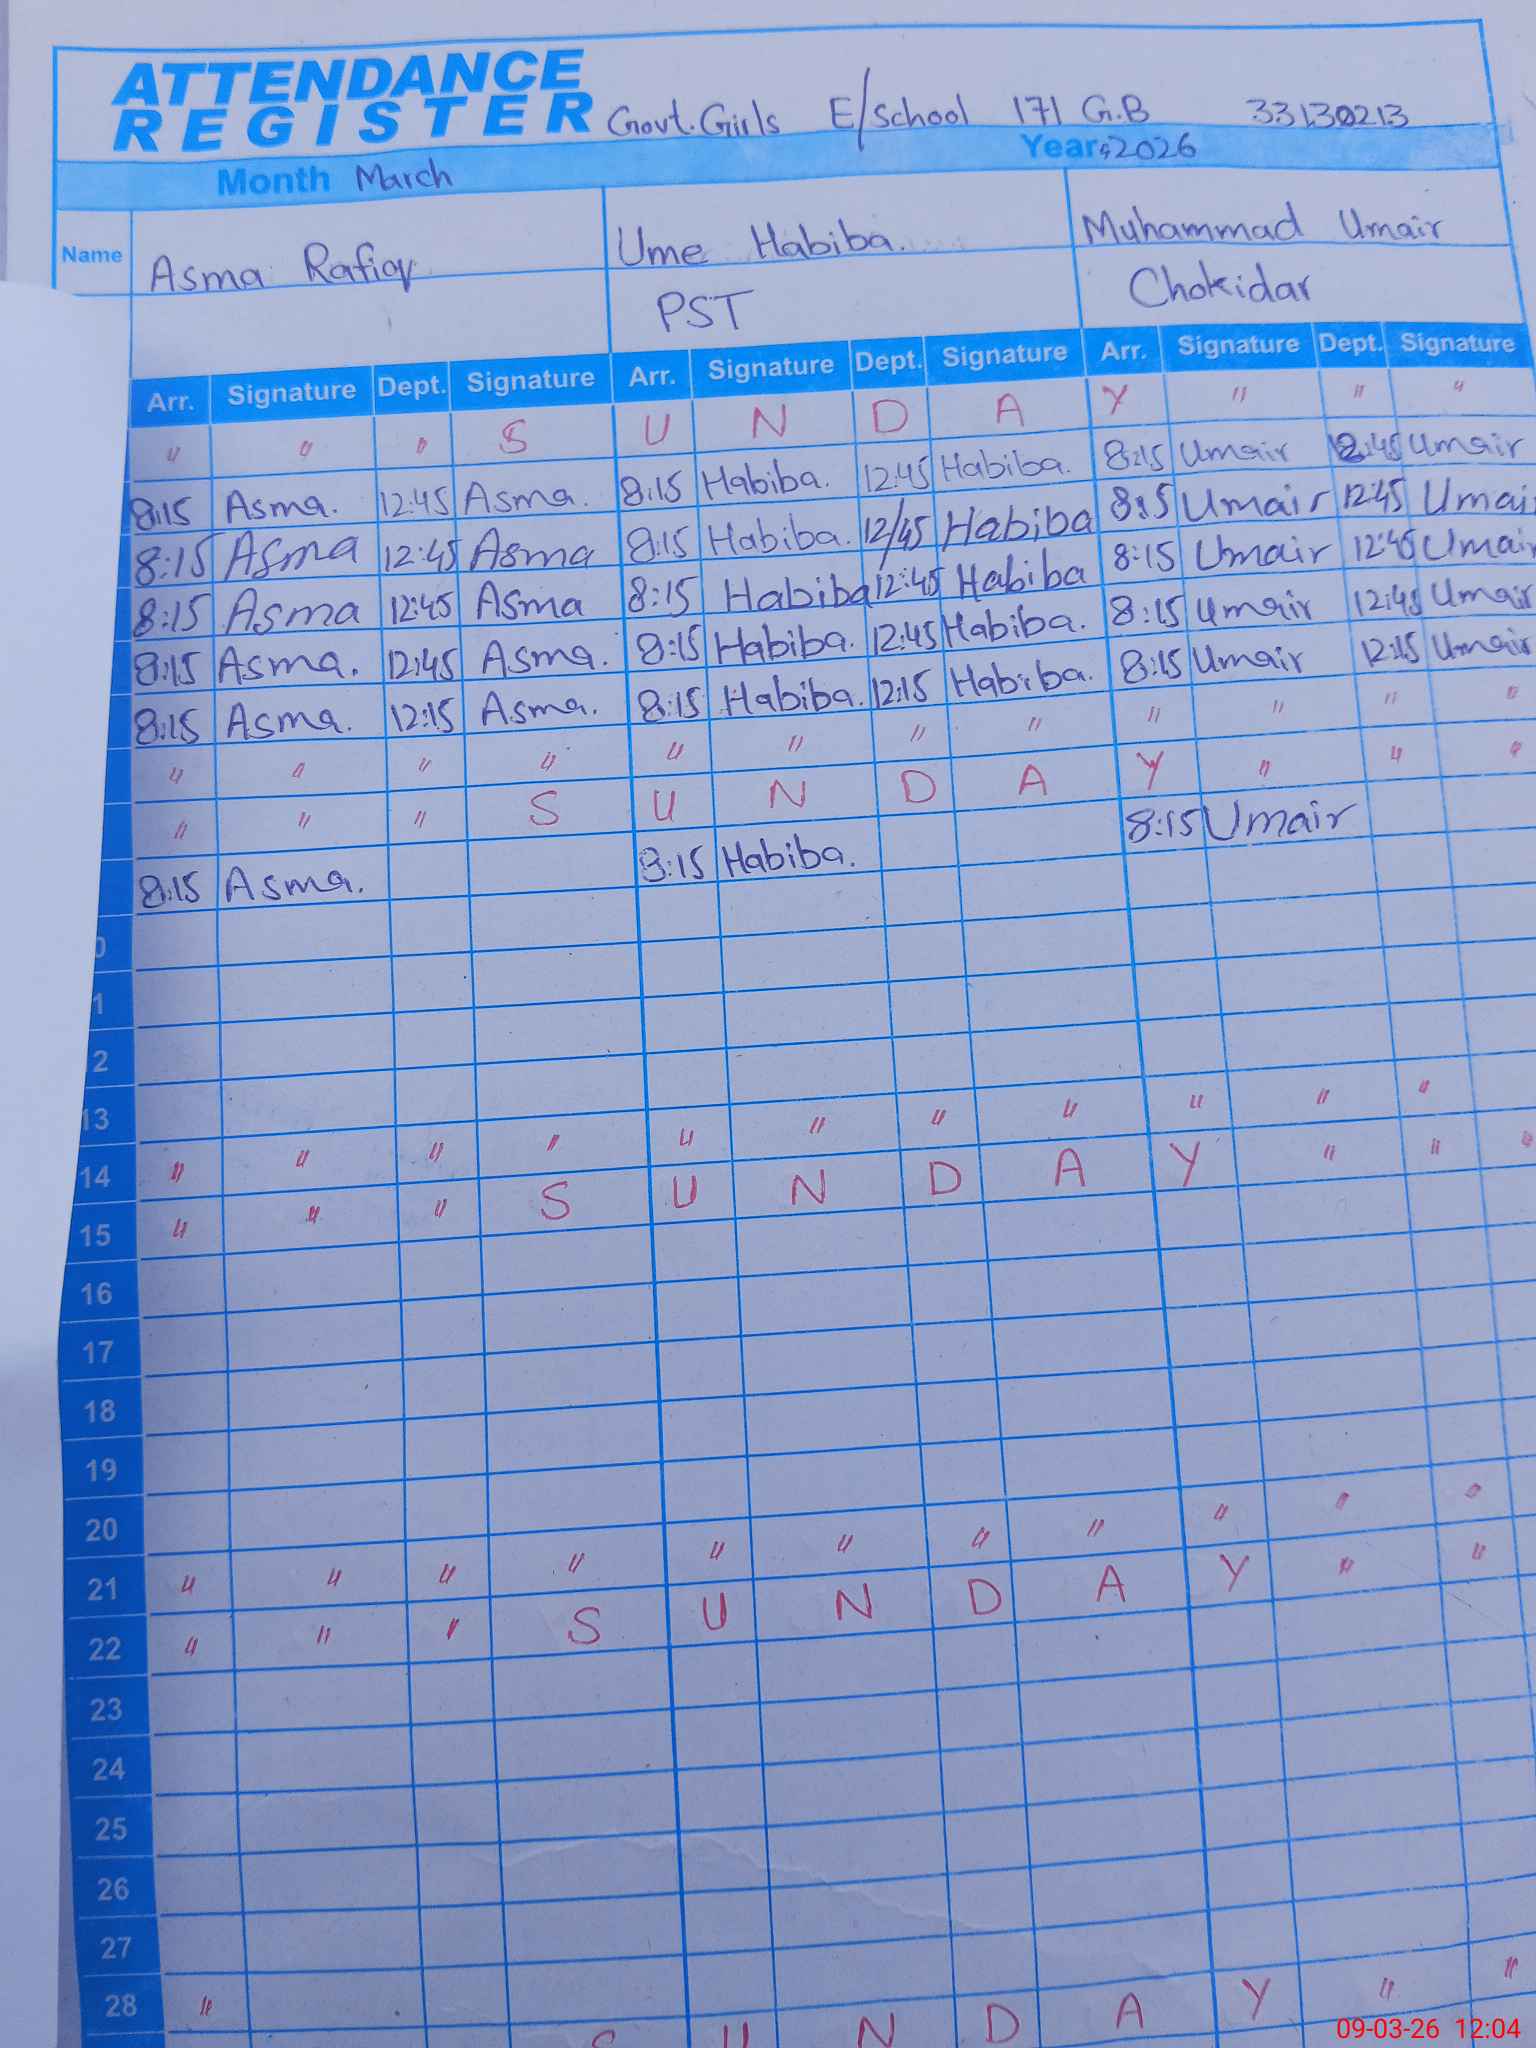 ATTENDANCE
REGISTER Govt. Girls E/School 171 G.B 33130213
Month March Year 2026
Name Asma Rafiq Ume Habiba. Muhammad Umair
PST Chokidar
Arr. Signature Dept. Signature Arr. Signature Dept. Signature Arr. Signature Dept. Signature
" " " S U N D A Y " " "
8:15 Asma. 12:45 Asma. 8:15 Habiba. 12:45 Habiba. 8:15 Umair 12:45 Umair
8:15 Asma 12:45 Asma 8:15 Habiba. 12/45 Habiba 8:15 Umair 12:45 Umair
8:15 Asma 12:45 Asma 8:15 Habiba 12:45 Habiba 8:15 Umair 12:45 Umair
8:15 Asma. 12:45 Asma. 8:15 Habiba. 12:45 Habiba. 8:15 Umair 12:45 Umair
8:15 Asma. 12:15 Asma. 8:15 Habiba. 12:15 Habiba. 8:15 Umair 12:15 Umair
" " " " " " " " " " " "
" " " S U N D A Y " " "
8:15 Asma. 8:15 Habiba. 8:15 Umair
0
1
2
13
14 " " " " " " " " " " "
15 " " " S U N D A Y " " "
16
17
18
19
20
21 " " " " " " " " " " "
22 " " " S U N D A Y " "
23
24
25
26
27
28 "
S U N D A Y " "
09-03-26 12:04